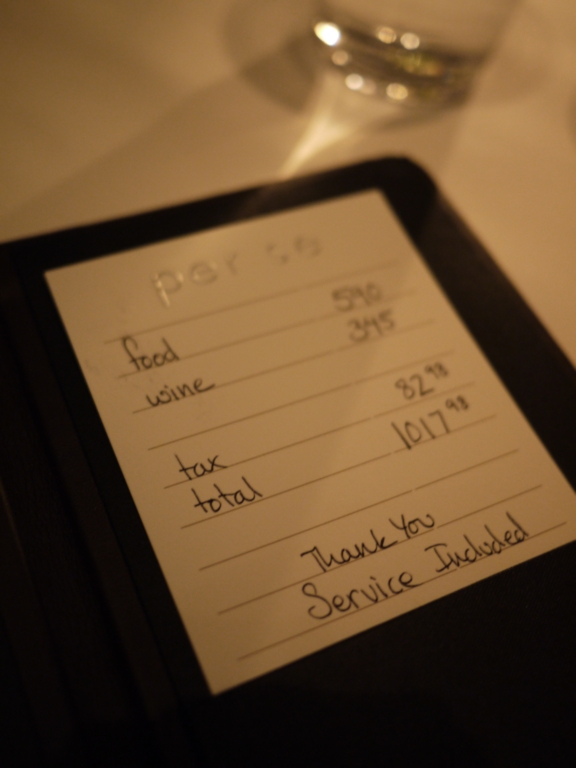 per se
food 590
wine 345
tax 82.98
total 1017.98
Thank You
Service Included